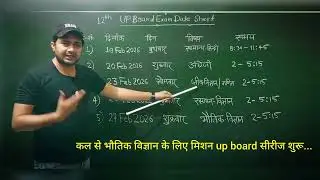 12th UP Board Exam Date Sheet
दिनांक दिन विषय समय
1) Feb 2026 बुधवार
2) 20 Feb 2026 शुक्रवार अंग्रेजी 2-5:15
23 Feb 2026 सोमवार 2-5:15
4) रसायन विज्ञान 2-5:15
5) 27 Feb 2026 शुक्रवार भौतिक विज्ञान 2-5:15
कल से भौतिक विज्ञान के लिए मिशन up board सीरीज शुरू...